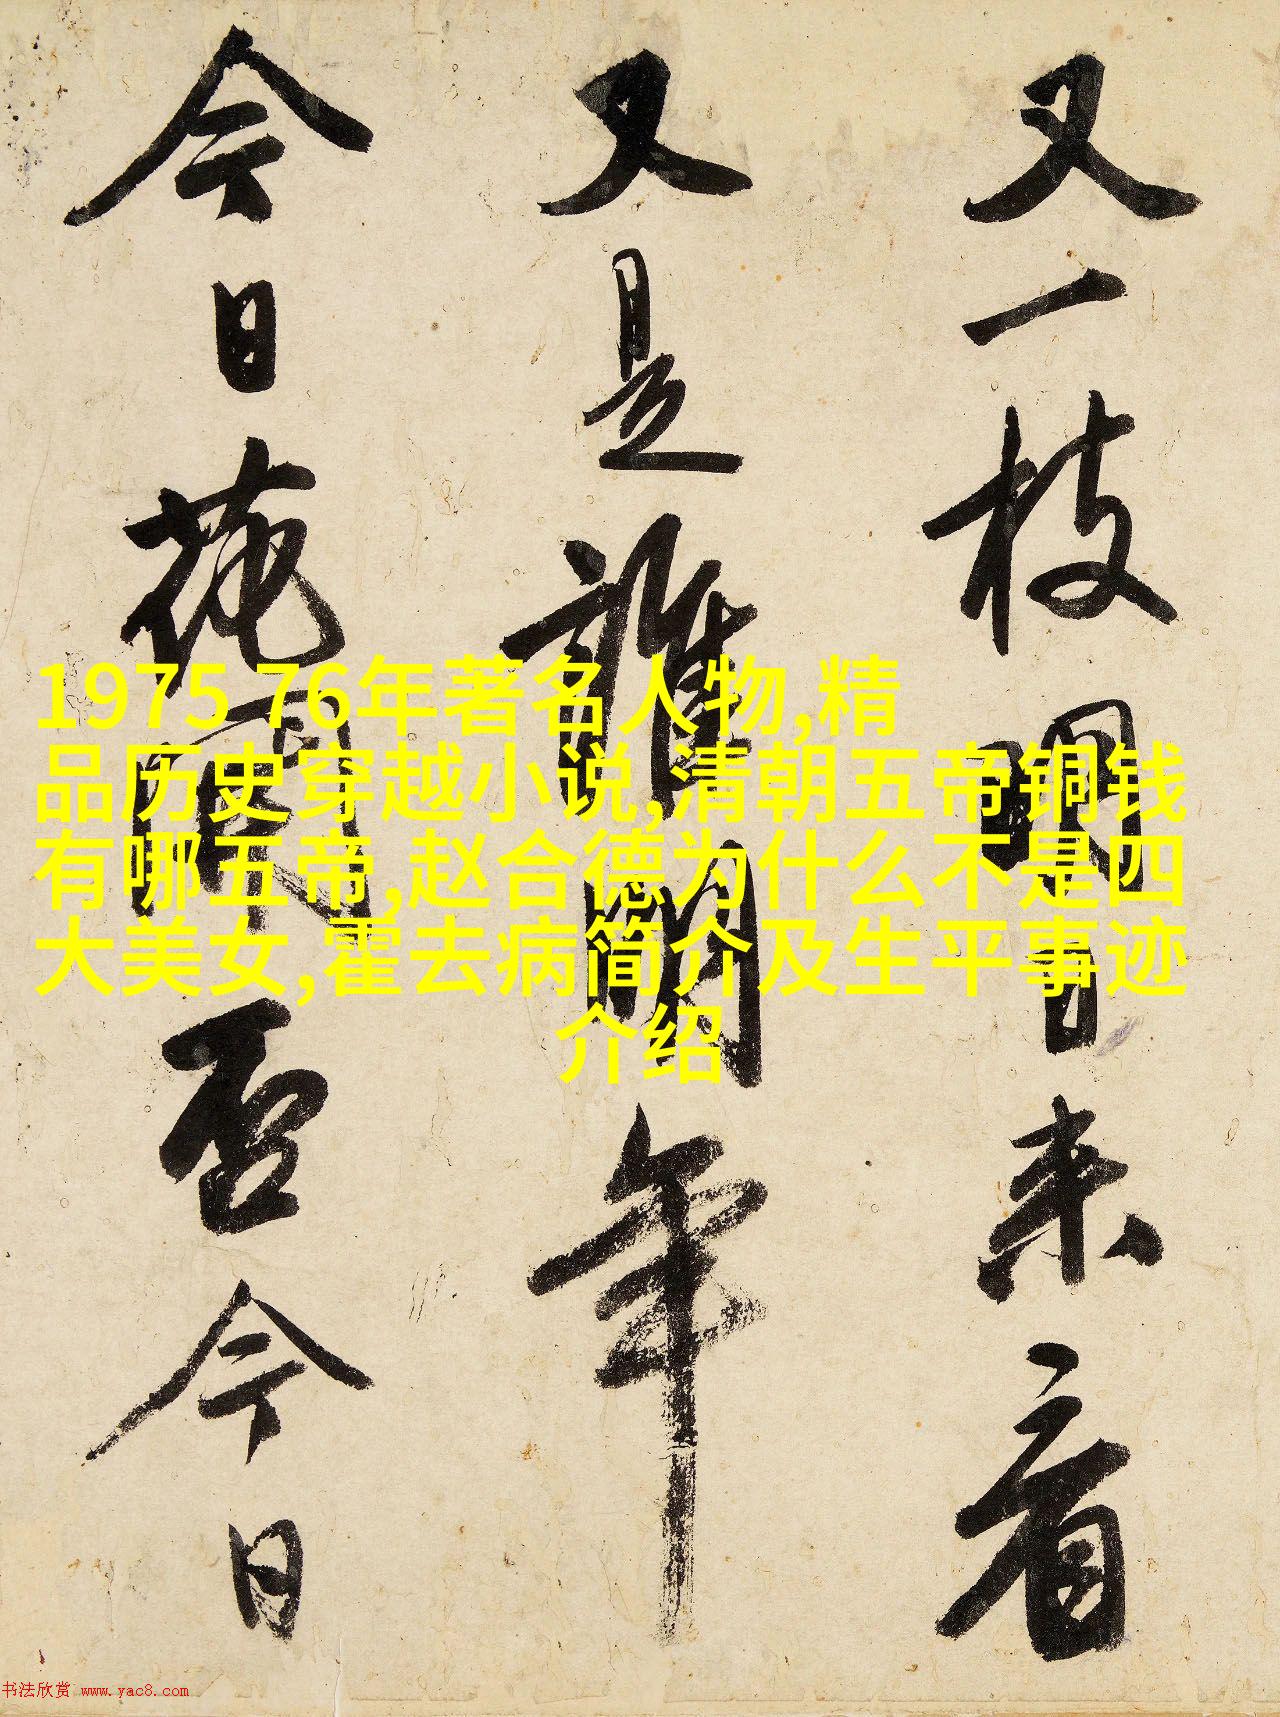 又一枝明日来看
又是誰明年
今日花開否今日
1975 76年著名人物,精
品历史穿越小说,清朝五帝铜钱
有哪五帝,赵合德为什么不是四
大美女,霍去病简介及生平事迹
介绍
书法欣赏 www.yac8.com